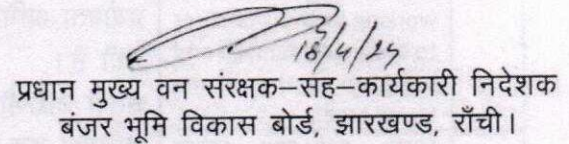 18/4/24
प्रधान मुख्य वन संरक्षक–सह–कार्यकारी निदेशक
बंजर भूमि विकास बोर्ड, झारखण्ड, राँची।